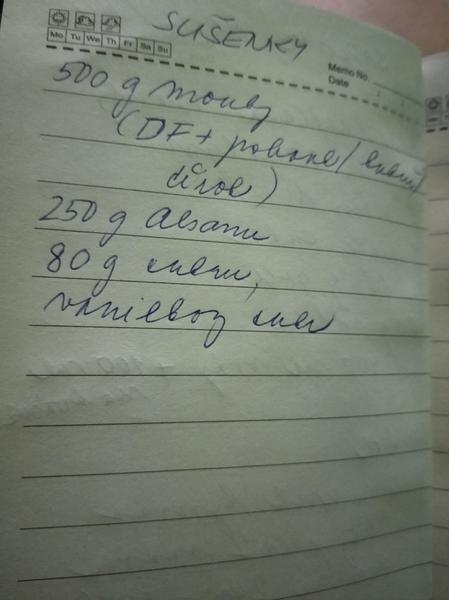 SUŠENKY
Mo Tu We Th Fr Sa Su
Memo No.
Date
500 g mouky
(DF + pohanka/
)
250 g Alsanu
80 g cukru,
vanilkový cukr